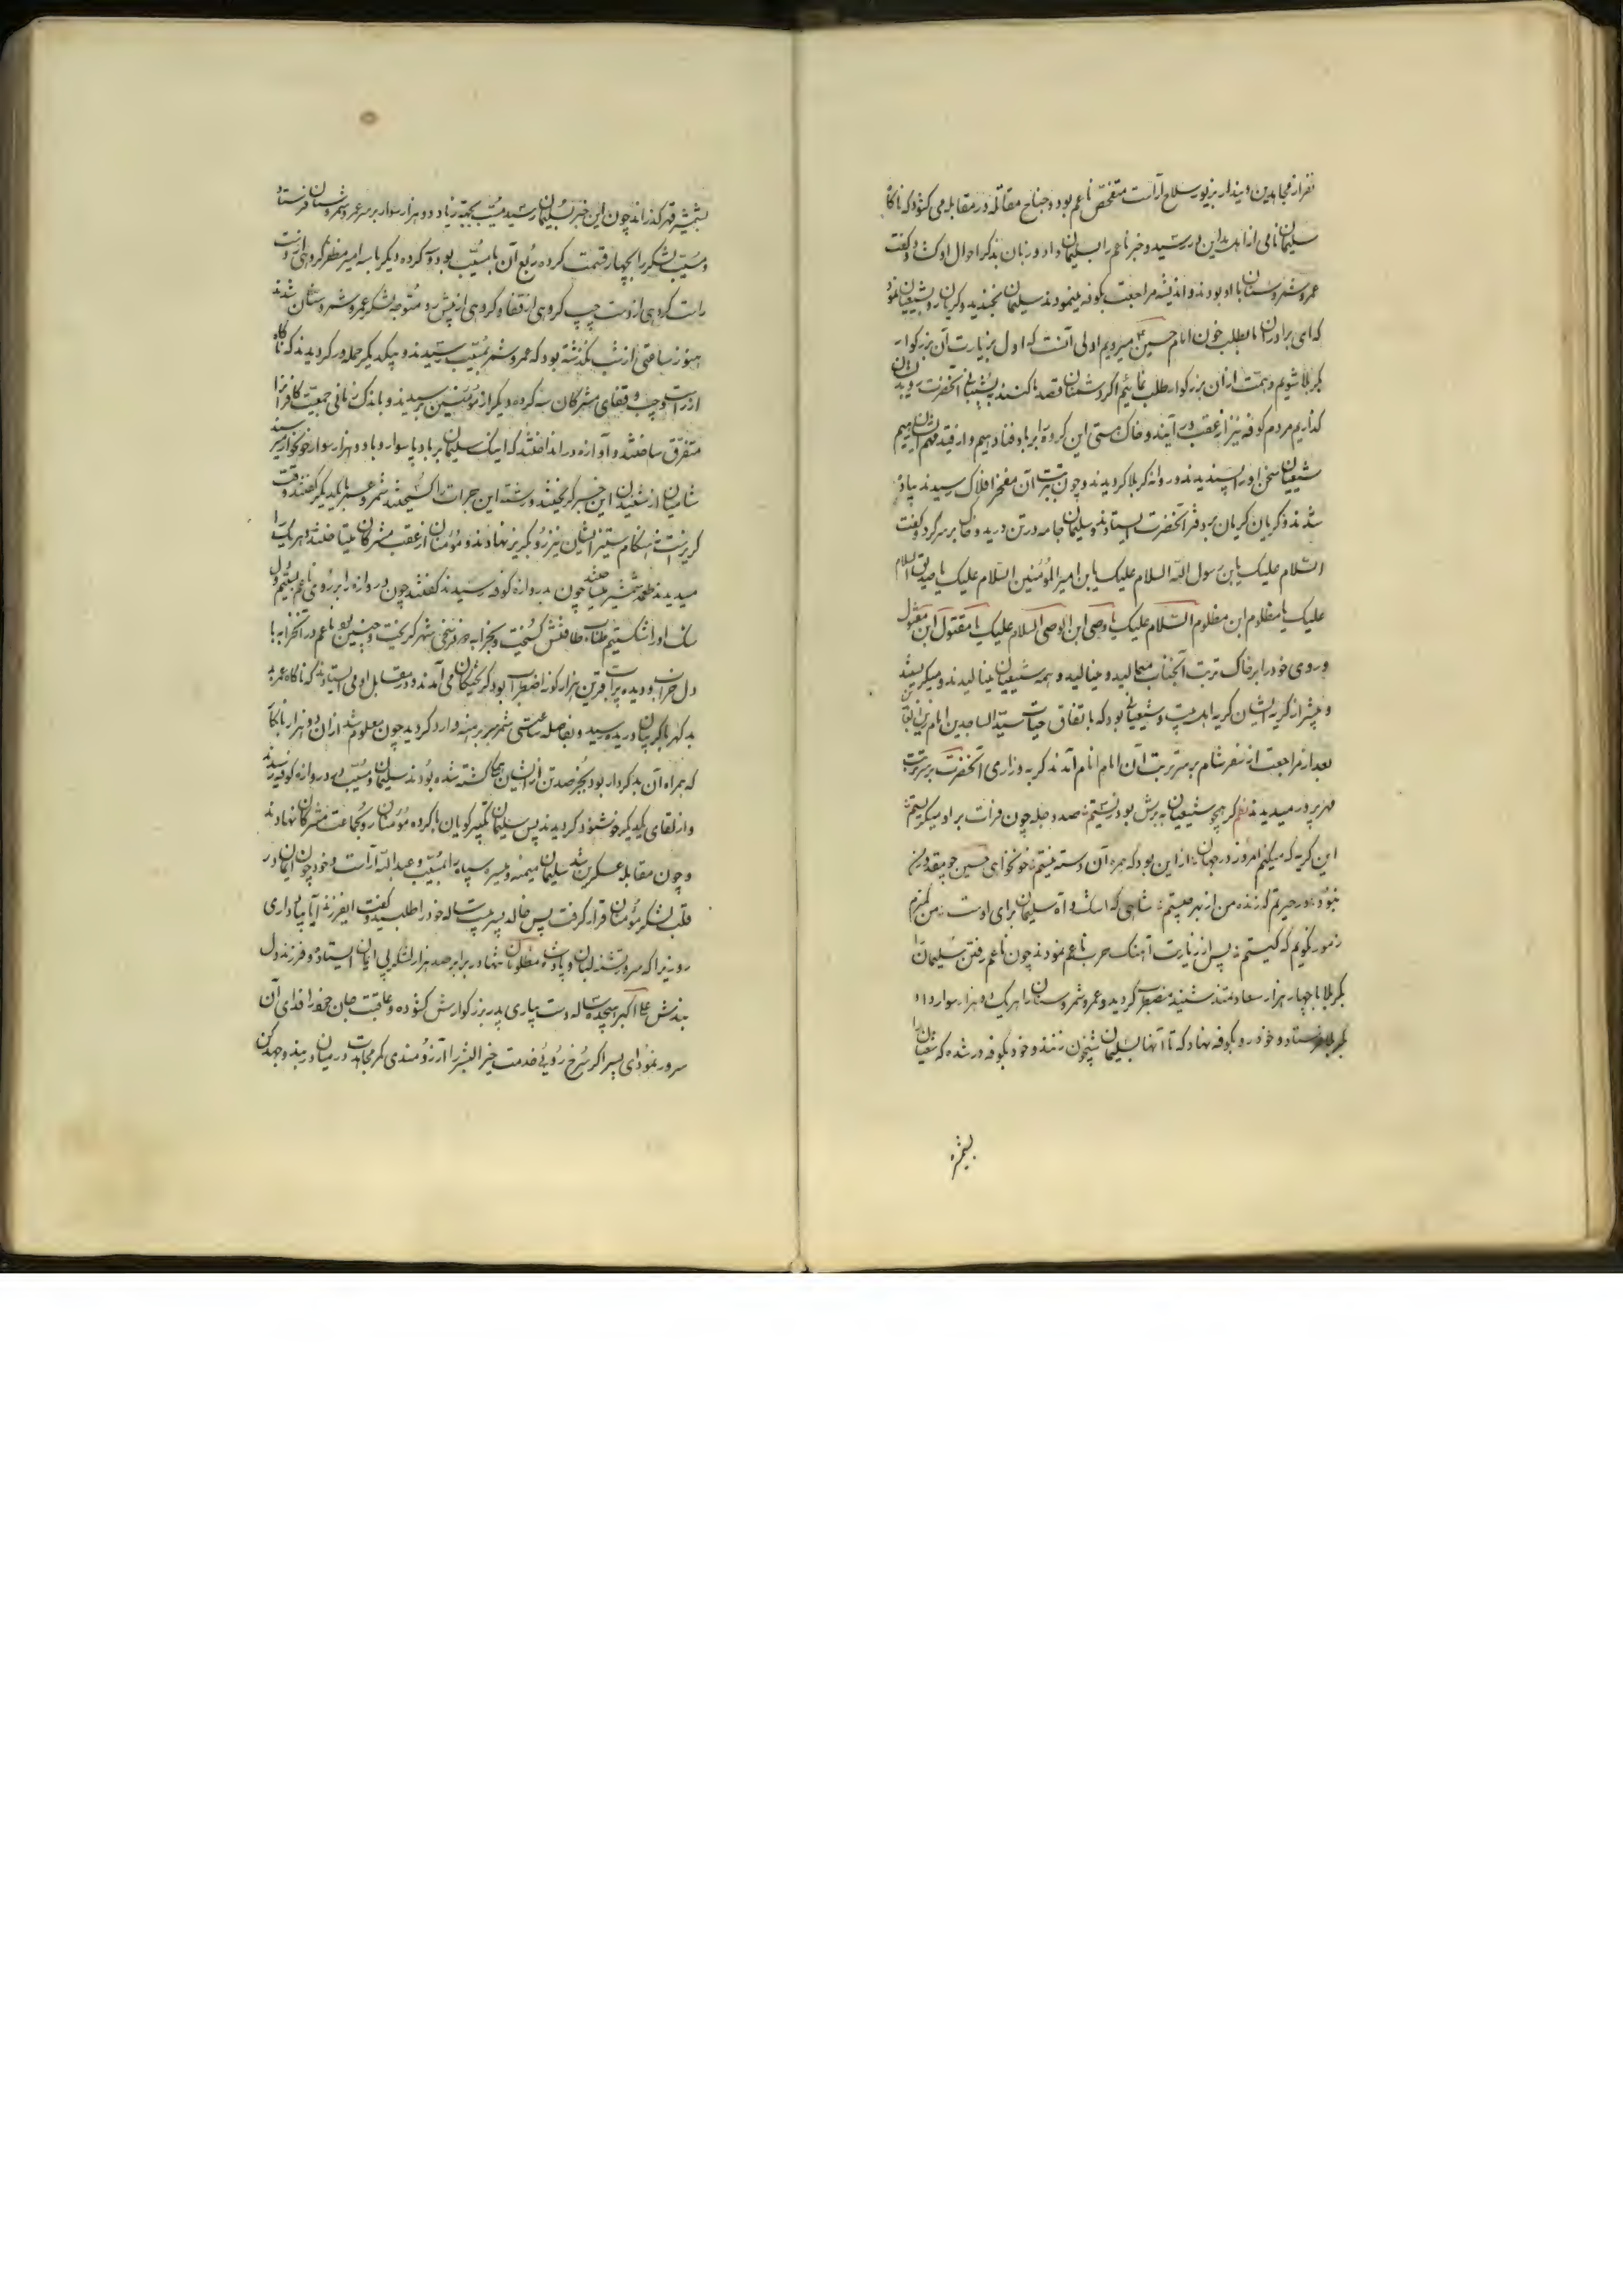 نفر از مجاهدین دیندار بزیور سلاح آراست متفحص ناعم بود و جناح مقاتله در مقابله می کشود که ناکاه
سلیمان نامی از اهل مداین در رسید و خبر ناعم را بسلیمان داد و زبان بذکر احوال او کشاد و کفت
عمر و شمر و سنان با او بودند و اندیشه مراجعت بکوفه مینمودند سلیمان بخندید و کریان رو بشیعیان نمود
که ای برادران ما بطلب خون امام حسین میرویم اولی آنست که اول بزیارت آن بزرکوار
بکربلا شویم و همت از آن بزرکوار طلب نمائیم اکر دشمنان قصد ما کنند به پشتیبانی آنحضرت رو بدیشان
کذاریم مردم کوفه نیز از عقب در آیند و خاک هستی این کروه را بر باد فنا دهیم و از قید غم
شیعیان سخن او را پسندیدند و روانه کربلا کردیدند و چون بتربت آن مفخر افلاک رسیدند پیاده
شدند و کریان کریان بر دور قبر آنحضرت ایستادند و سلیمان جامه در تن درید و خاک بر سر کرد و کفت
السلام علیک یابن رسول الله السلام علیک یابن امیر المؤمنین السلام علیک یا صدیق السلام
علیک یا مظلوم ابن مظلوم السلام علیک یا وصی ابن الوصی السلام علیک یا مقتول ابن مقتول
و روی خود را بر خاک تربت آنجناب میمالید و مینالید و همه شیعیان مینالیدند و میکریستند
و بیشتر از کریه ایشان کریه اهل بیت و شیعیانی بود که باتفاق جناب سید الساجدین امام زین العباد
بعد از مراجعت از سفر شام بر سر تربت آن امام انام آمدند کریه و زاری آنحضرت بر سر تربت
مهرپرور میدیدند نظم کر همچو شیعیان به برش بود زیستیم صد دجله چون فرات بر او میکریستیم
این کریه که میکنم امروز در جهان از این بود که همره آن دسته نیستم خونخوای حسین چو مقدور من
نبود در حیرتم که زنده من از بهر چیستم شاهی که اشک و آه سلیمان برای اوست من کمترم
ز مور نکویم که کیستم پس از زیارت آهنک حرب ناعم نمودند چون ناعم رفتن سلیمان را
بکربلا با چهار هزار سعادتمند شنید مضطر کردید و عمر و شمر و سنان را هر یک دو هزار سوار داد
بکربلا فرستاد و خود رو بکوفه نهاد که تا آنها بسلیمان شبیخون زنند و خود بکوفه در شده که شیعیان را
بشمشیر
بشمشیر قهر کذراند چون این خبر بسلیمان رسید مسیب بجهته زیاد دو هزار سوار بر سر عمر و شمر و سنان فرستاد
و مسیب لشکر را بچهار قسمت کرده ربع آن با مسیب بود و سه کروه دیکر با سه امیر مظفر کروهی از دست
راست کروهی از دست چپ کروهی از قفا و کروهی از پیش رو متوجه لشکر عمر و شمر و سنان شدند
هنوز ساعتی از شب نکذشته بود که عمر و شمر بمسیب رسیدند و بیکدیکر حمله ور کردیدند که ناکاه
از راست و چپ و قفای مشرکان سه کروه دیکر از مؤمنین برسیدند و باندک زمانی جمعیت کافران را
متفرق ساختند و آوازه در انداختند که اینک سلیمان بر باد پا سوار و با دو هزار سوار خونخوار رسید
شامیان از شنیدن این خبر کریختند و رشته این جرات را کسیختند شمر و عمر با یکدیکر کفتند وقت
کریز است نه هنکام ستیز ایشان نیز رو بکریز نهادند و مؤمنان از عقب مشرکان میتاختند و هر یک را
میدیدند طعمه شمشیر میساختند چون بدروازه کوفه رسیدند کفتند چون دروازه را بر روی ناعم بستیم و دل
سنک او را شکستیم طناب طاقتش کسیخت و بخرابه در نزدیکی شهر کریخت و چنین بود ناعم در آنخرابه با
دل خراب و دیده پر آب قرین هزار کونه اضطراب بود کریختکان می آمدند و در مقابل او می ایستادند که ناکاه عمر
بد کهر با کریبان دریده رسید و بفاصله ساعتی شمر سر برهنه وارد کردید چون معلوم شد از آن دو هزار ناپاک
که همراه آن بدکردار بود بجز صد تن از ایشان همه کشته شده بودند سلیمان و مسیب بر در دروازه کوفه رسیدند
و از لقای یکدیکر خوشنود کردیدند پس سلیمان تکبیر کویان با کروه مؤمنان رو بجماعت مشرکان نهادند
و چون مقابله عسکرین شد سلیمان میمنه و میسره سپاه را بمسیب و عبدالله آراست و خود چون ایمان در
قلب لشکر مؤمنان قرار کرفت پس خاله پسر بیست ساله خود را طلبید و کفت ایفرزند آیا بیاد داری
روزیرا که سرور تشنه لبان و پادشاه مظلومان تنها در برابر صد هزار لشکر بی ایمان ایستاده و فرزند دل
بندش علی اکبر هیجده ساله دست بیاری پدر بزرکوارش کشوده و عاقبت جان خود را فدای آن
سرور نمود ای پسر اکر سرخ روئی خدمت خیر البشر را آرزومندی کمر مجاهدت در میان بند و جهد کن